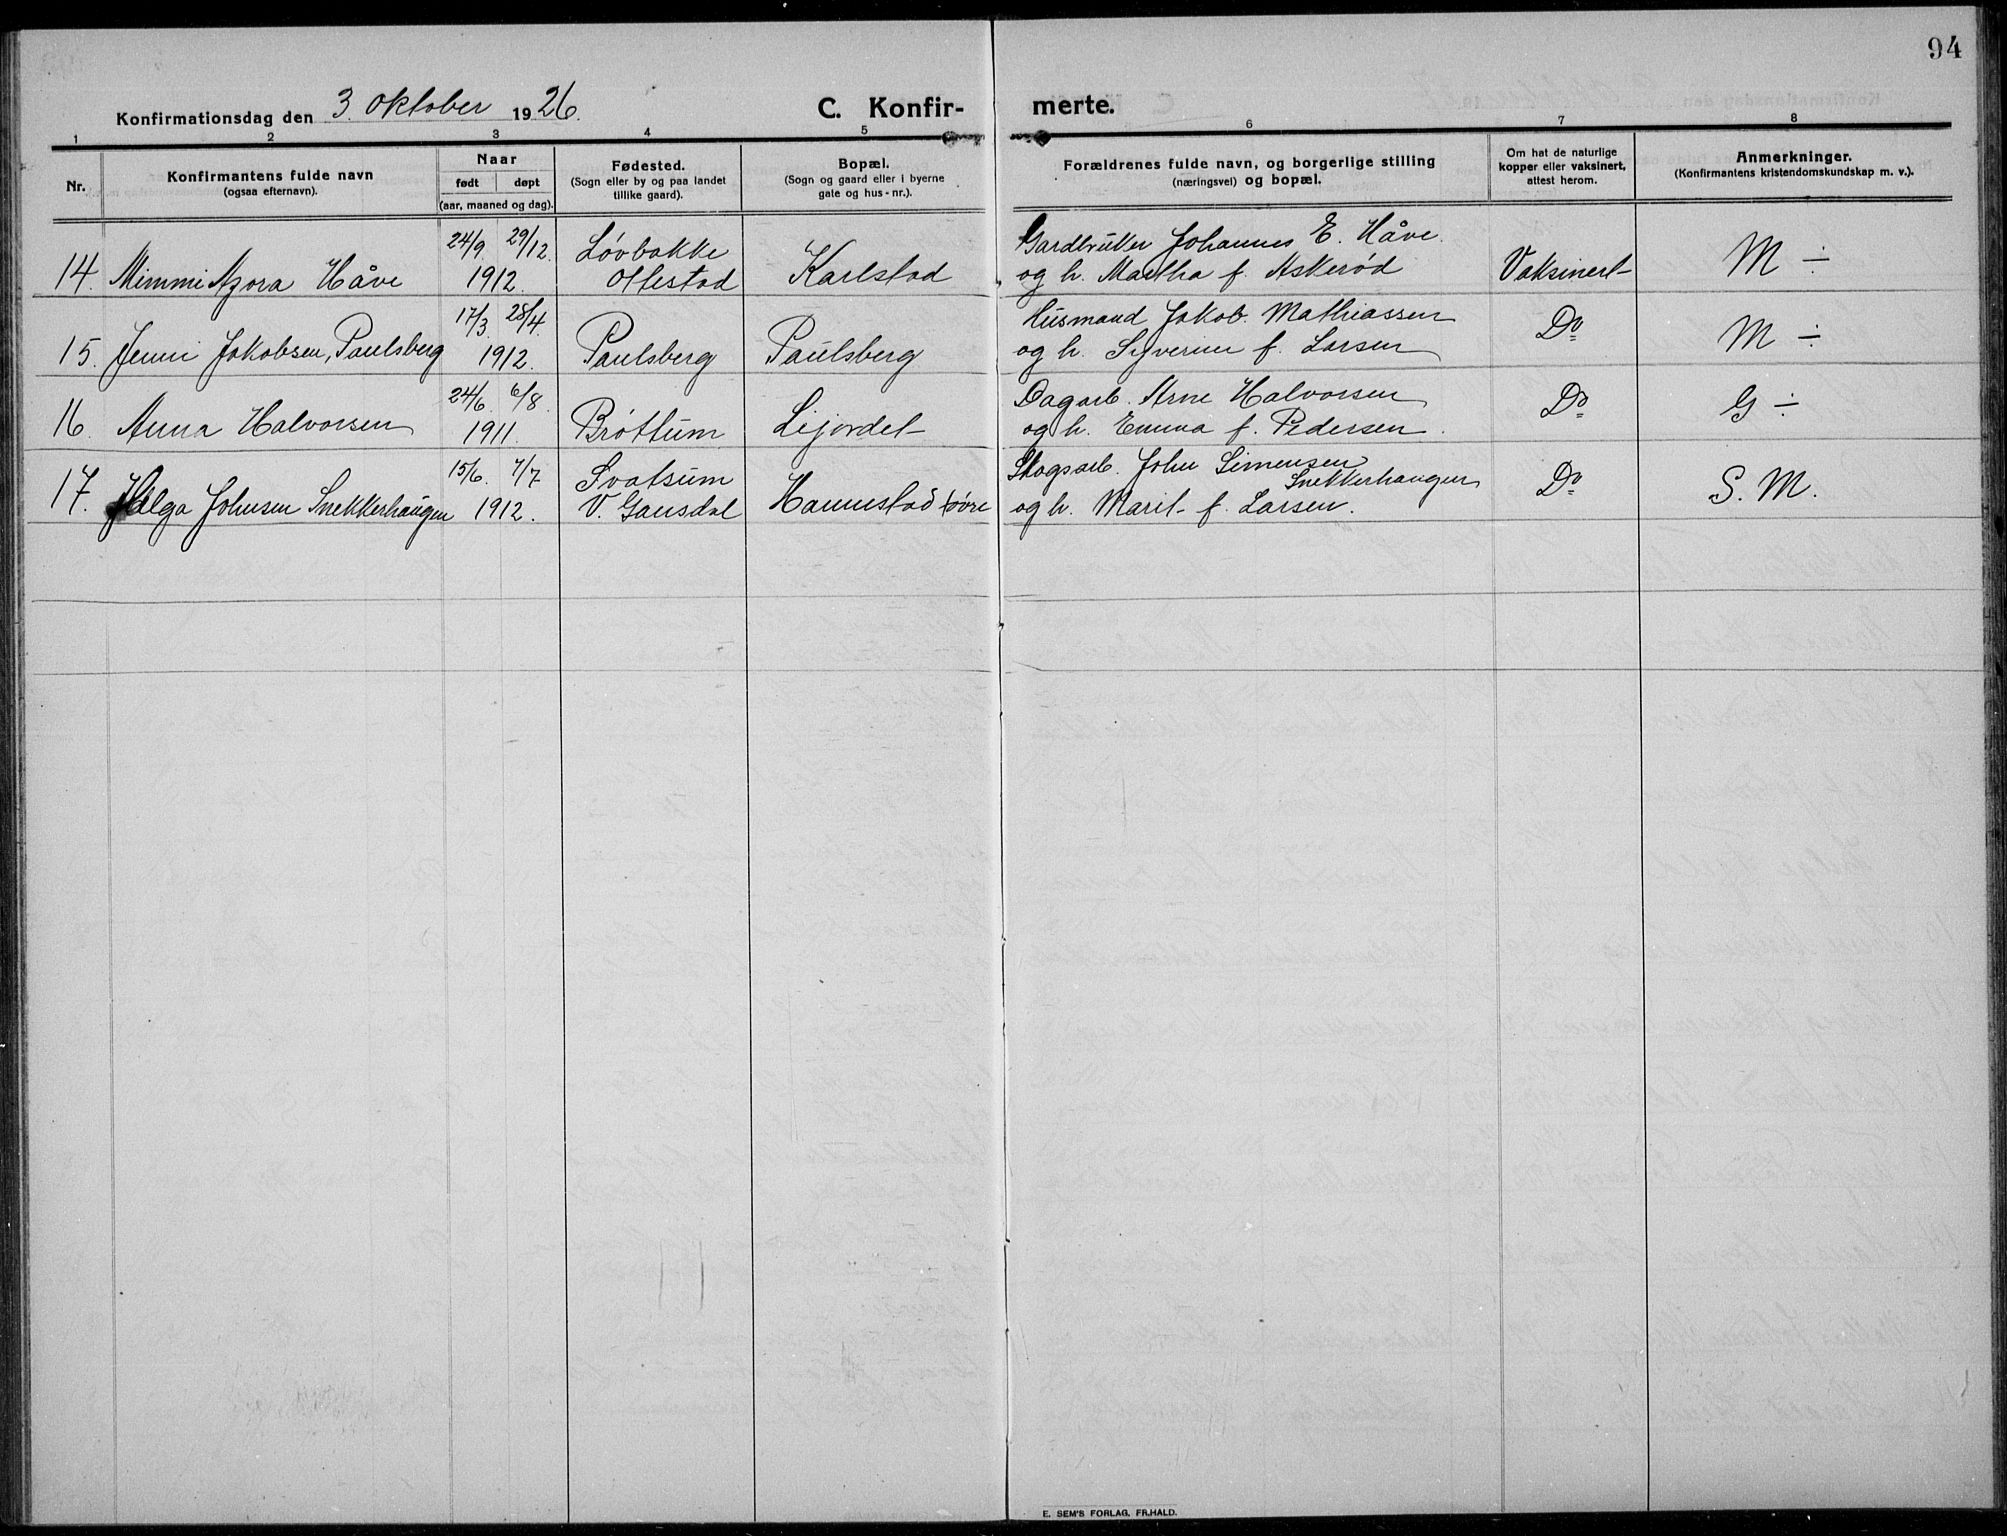 94
Konfirmationsdag den 3. oktober 1926.
C. Konfir- merte.
1 2 3 4 5 6 7 8
Nr.
Konfirmantens fulde navn
(ogsaa efternavn).
Naar
født døpt
(aar, maaned og dag).
Fødested.
(Sogn eller by og paa landet
tillike gaard).
Bopæl.
(Sogn og gaard eller i byerne
gate og hus-nr.).
Forældrenes fulde navn, og borgerlige stilling
(næringsvei) og bopæl.
Om hat de naturlige
kopper eller vaksinert,
attest herom.
Anmerkninger.
(Konfirmantens kristendomskundskap m. v.).
24/9 29/12 Løvbakke Gardbruker Johannes E. Håve.
14. Mimmi Azora Håve 1912. Ottestad Karlstad og h. Martha f. Askerød Vaksinert M ÷
17/3 28/4 Husmand Jakob Mathiassen
15. Jenni Jakobsen, Paulsberg 1912. Paulsberg Paulsberg og h. Syverine f. Larsen Do M ÷
24/6. 6/8. Dagarb. Arne Halvorsen
16. Anna Halvorsen 1911. Brøttum Lijordet og h. Emma f. Pedersen. Do G ÷
15/6. 7/7 Svatsum Skogsarb. John Simensen
Snekkerhaugen
17. Helga Johnsen Snekkerhaugen 1912. V. Gausdal Hammestad øvre og h. Marit f. Larsen. Do S. M.
E. SEM'S FORLAG, FR.HALD.